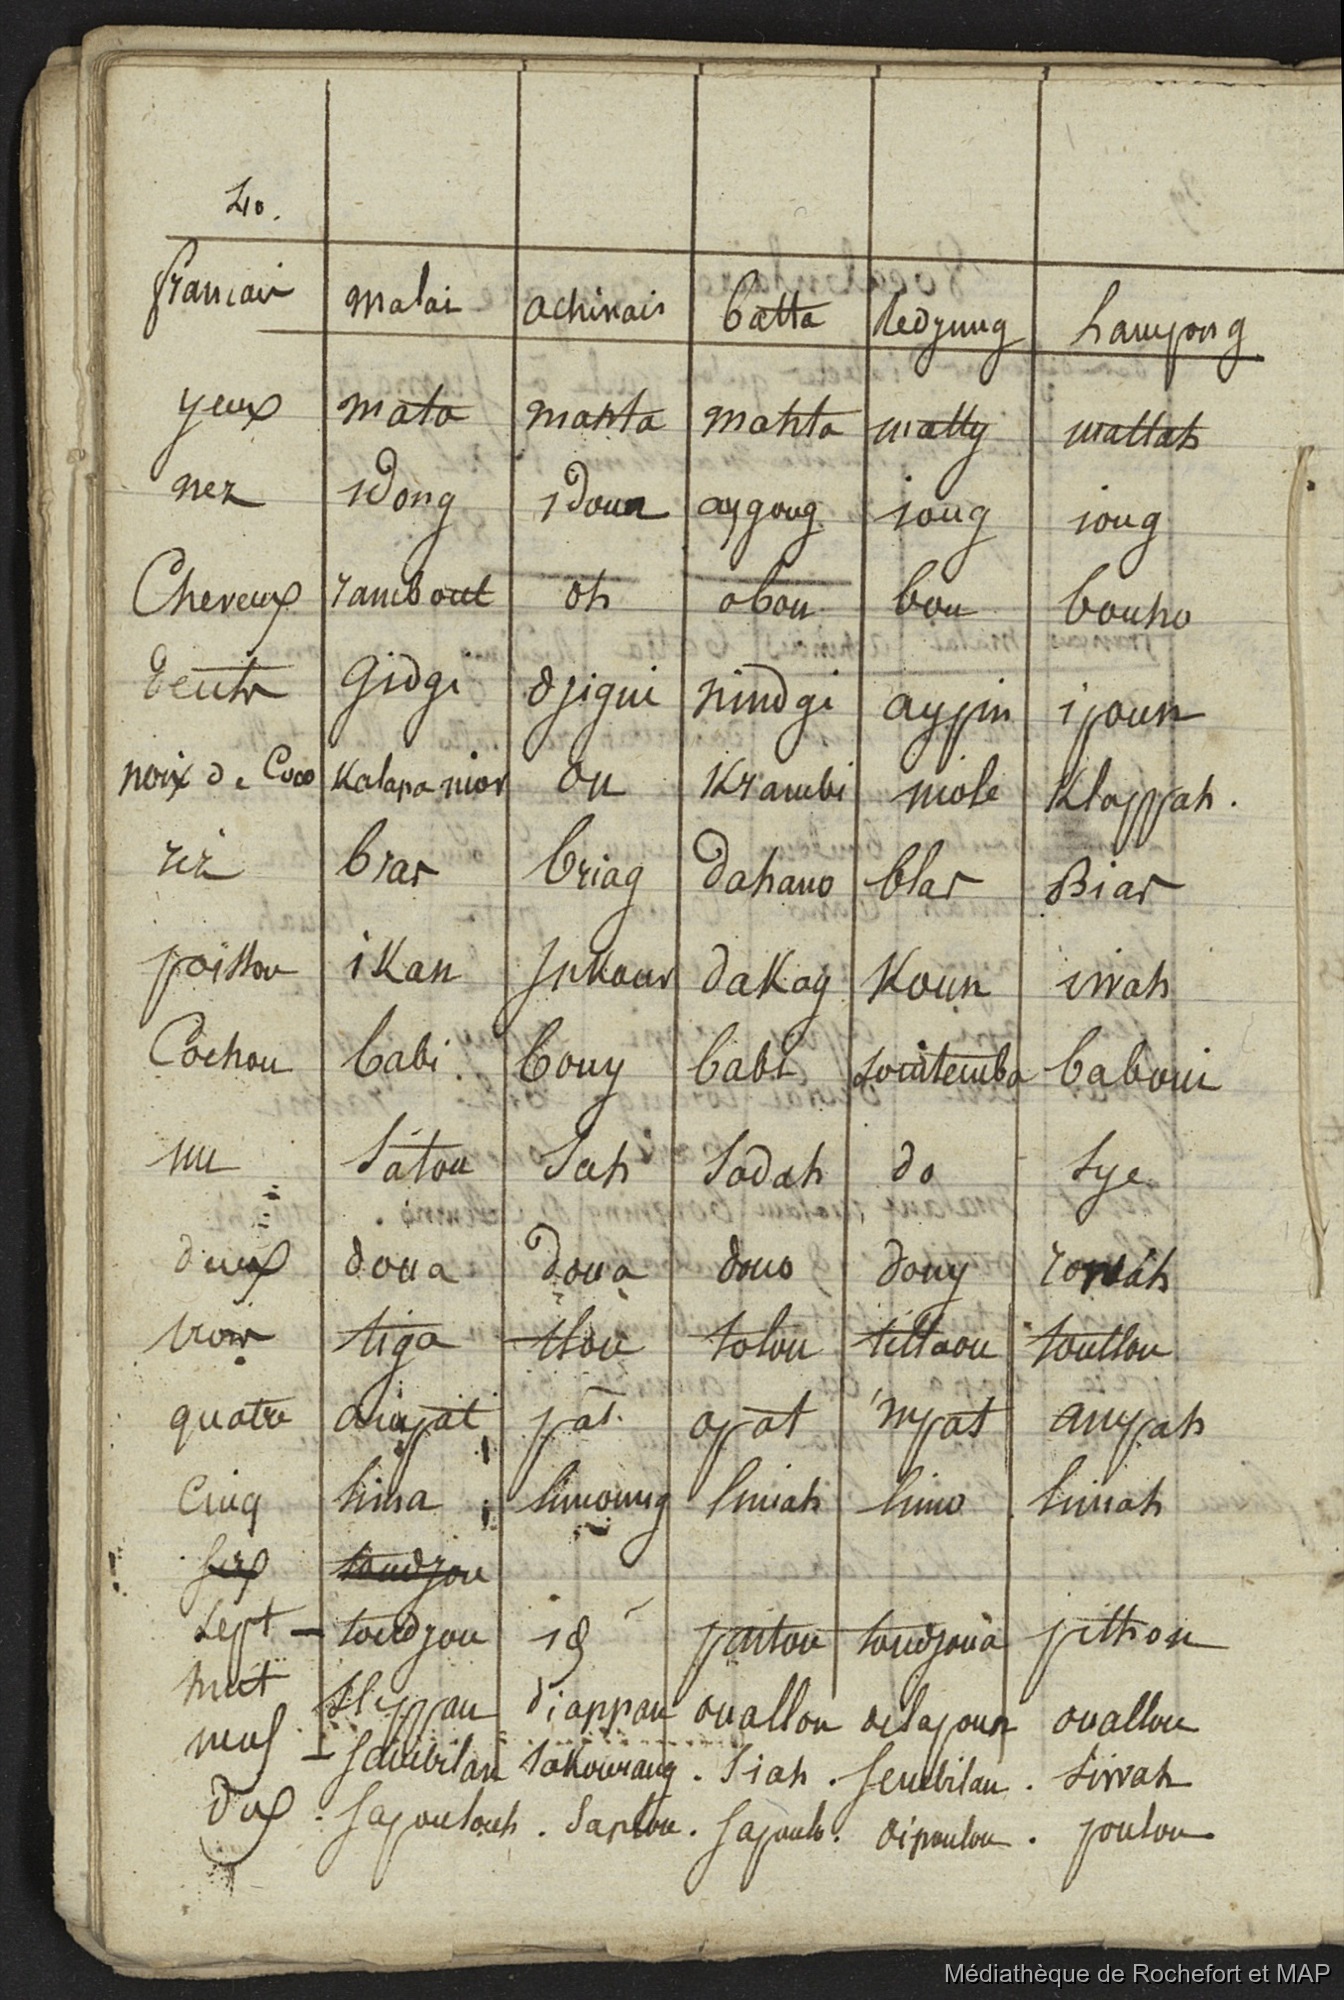 40.
francais malai achinais batta Redjung Lampong
yeux mata mahta mahta matty mattah
nez idong idoun aygong ioug ioug
Cheveux rambout oh obou bou bouho
dents Gidgi djigui nindgi aypin ipoun
noix de Coco Kalapa nior ou Krambi niole Klappah.
riz bras briag dahano blas Bias
poisson iKan Inkour daKag Koun iwah
Cochon babi bouy babi souitemba baboui
un Satou Sah Sadah do Sye
deux doua doua douo douy rowah
trois tiga tlou tolou tillaou toullou
quatre ampat pat. opat 'mpat ampah
Cinq lima limoung limah limo limah
six toudjou
sept – toudjou id paitou toudjoua pithou
huit slappan diappan ouallou delapoun ouallou
neuf – Sambilan Sakourang . Siah . Sembilan . Siwah
dix . Sapoulouh . Saplou . Sapoulo . dipoulou . poulou
Médiathèque de Rochefort et MAP